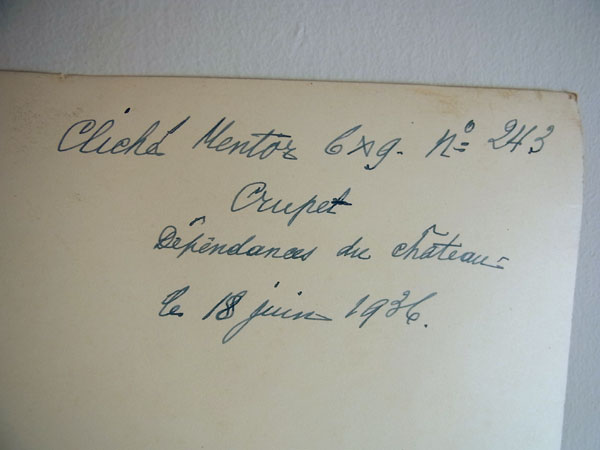 Cliché Mentor 6x9. nº 243
Crupet
Dépendances du château
le 18 juin 1936.